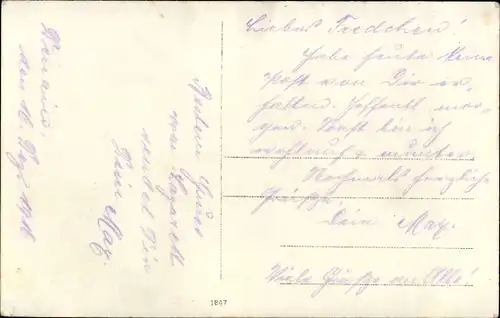 Liebes Friedchen!
Habe heute keine
Post von Dir er-
halten. Hoffentl. mor-
gen. Sonst bin ich
wohlauf & munter.
Nochmals herzliche
Grüße.
Dein Max.
Viele Grüße an Alle!
den 16. Dez. 1916
Besten Gruss
vom Lazarett
sendet Dir
Dein Max.
1847